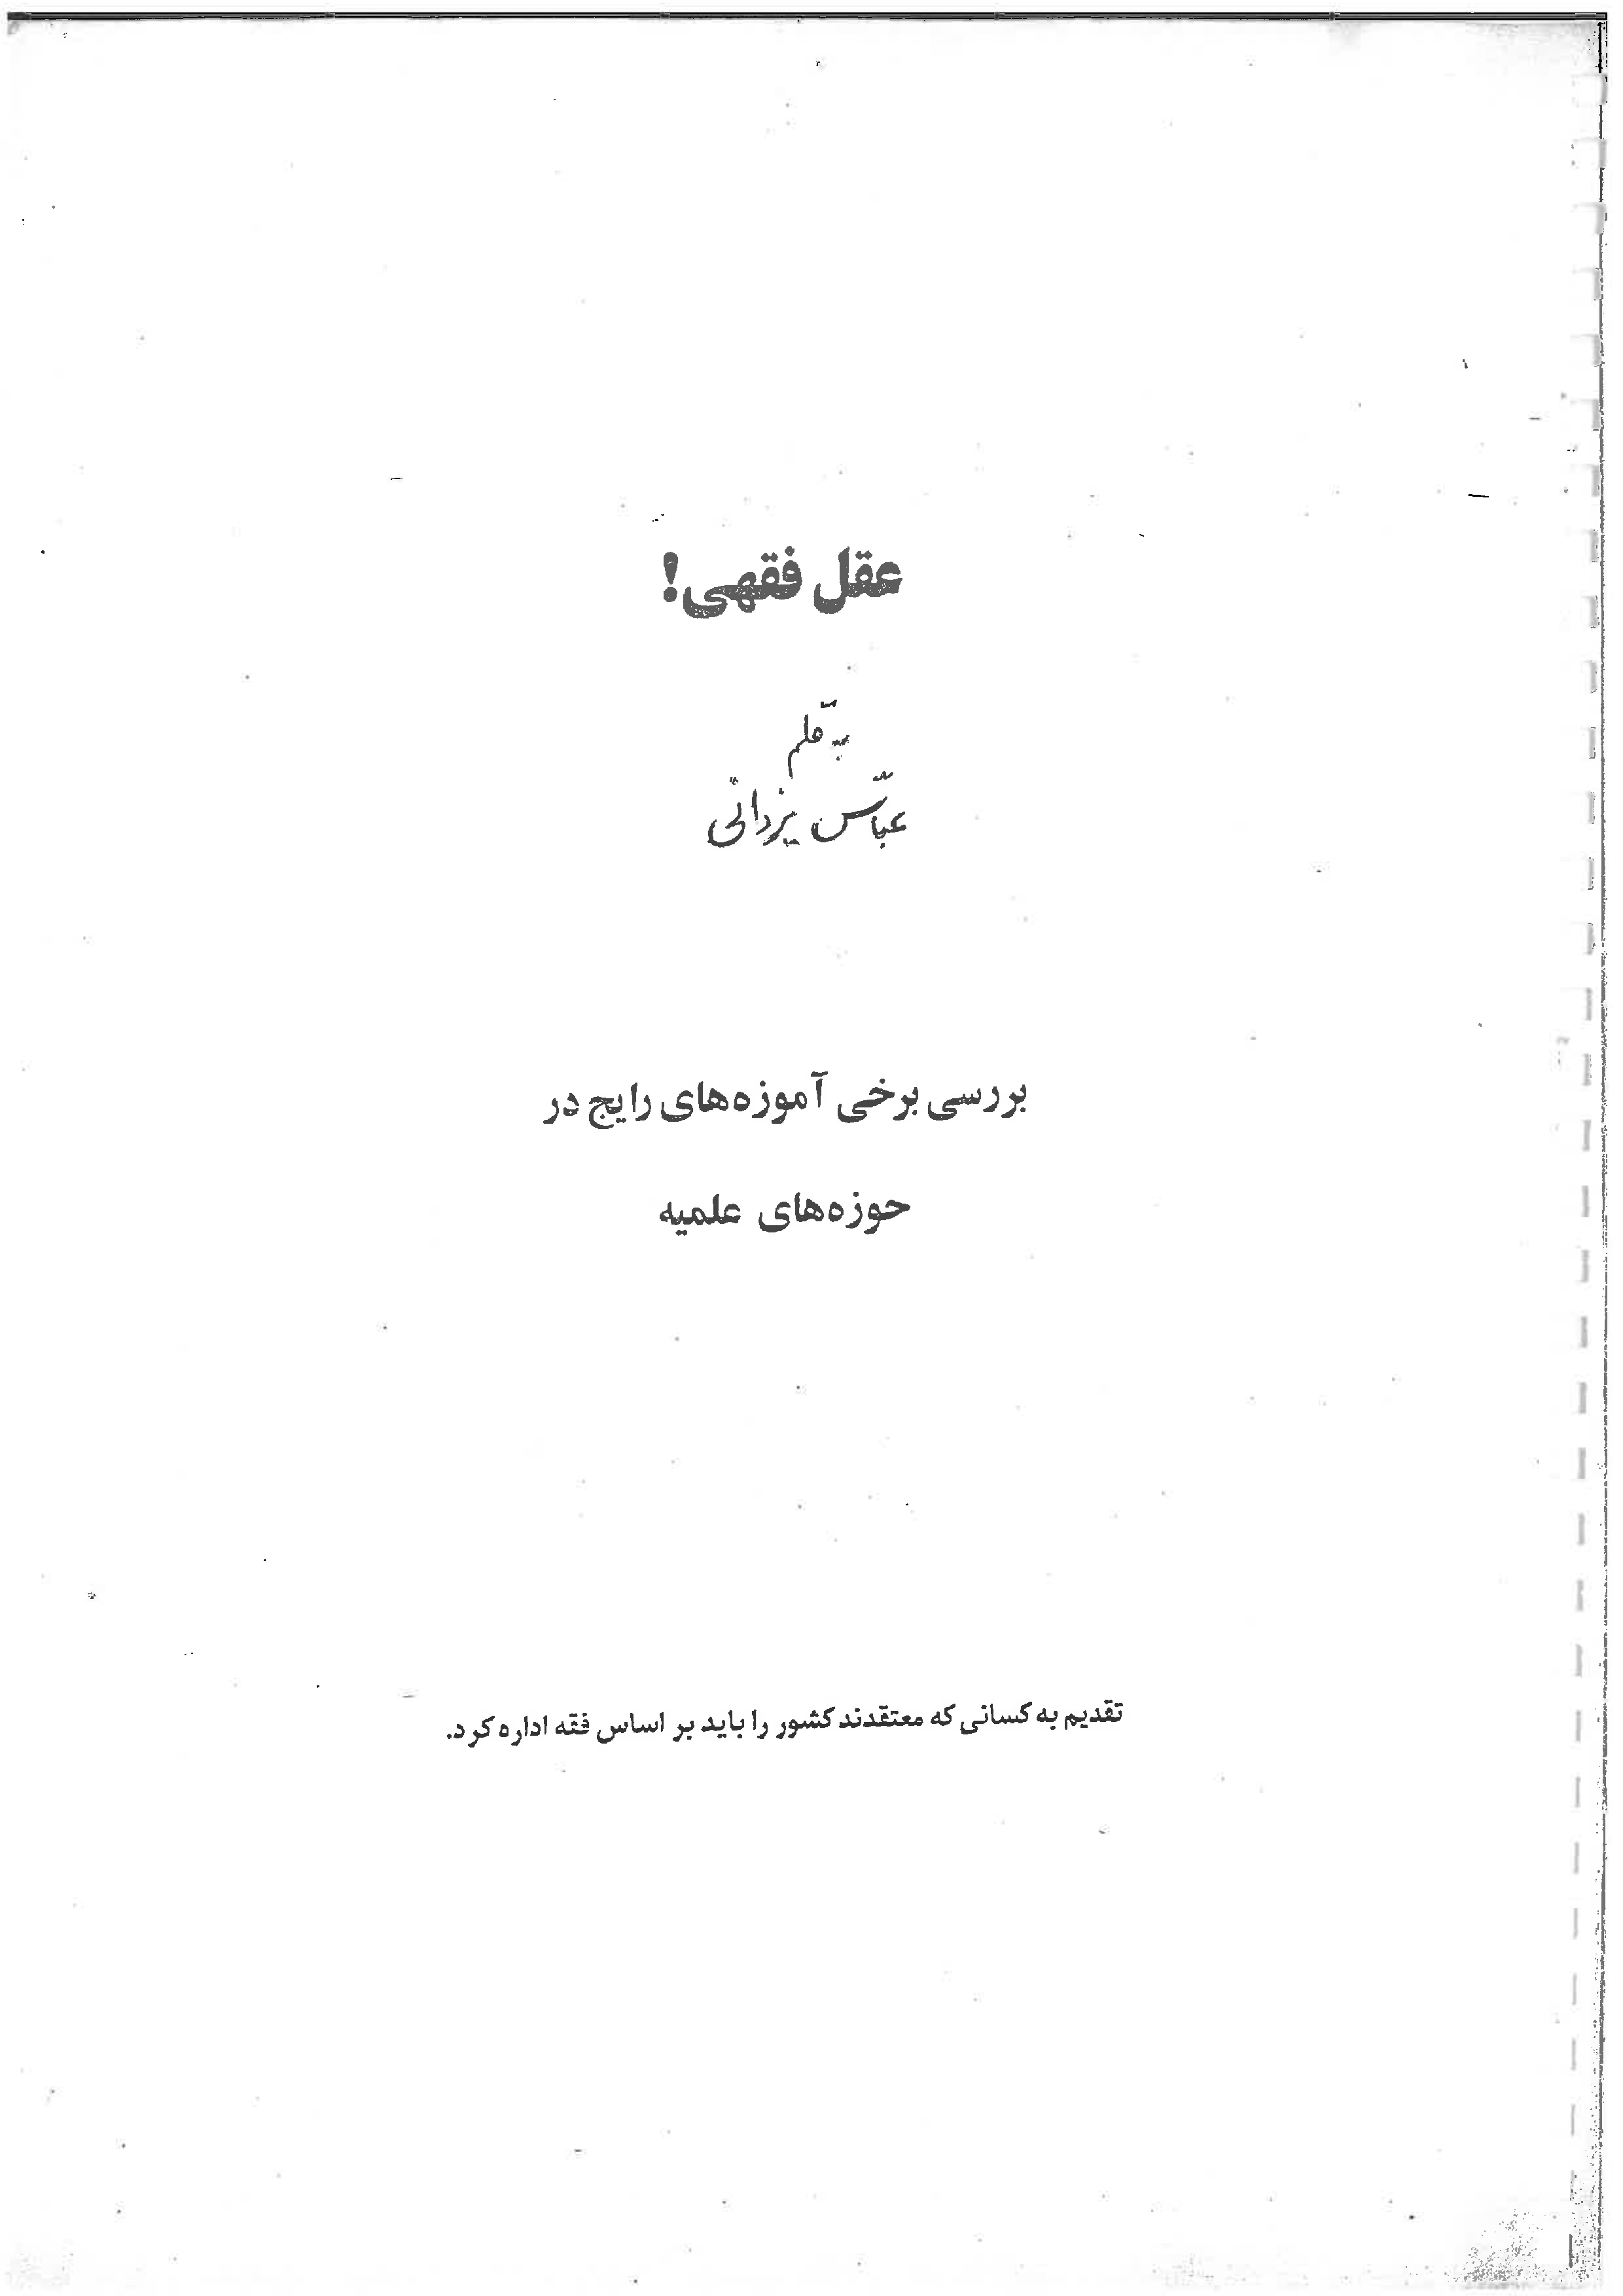 عقل فقهی!
به قلم
عبّاس یزدانی
بررسی برخی آموزه‌های رایج در
حوزه‌های علمیه
تقدیم به کسانی که معتقدند کشور را باید بر اساس فقه اداره کرد.